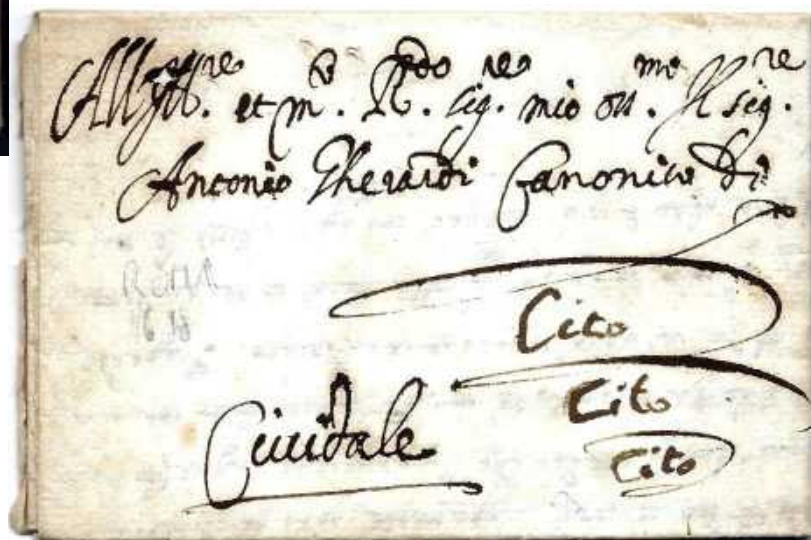 All Ill.re et m.to R.do sig.re mio oss.mo Il sig.re
Antonio Gherardi Canonico di
Cito
Cito
Cito
Ciuidale